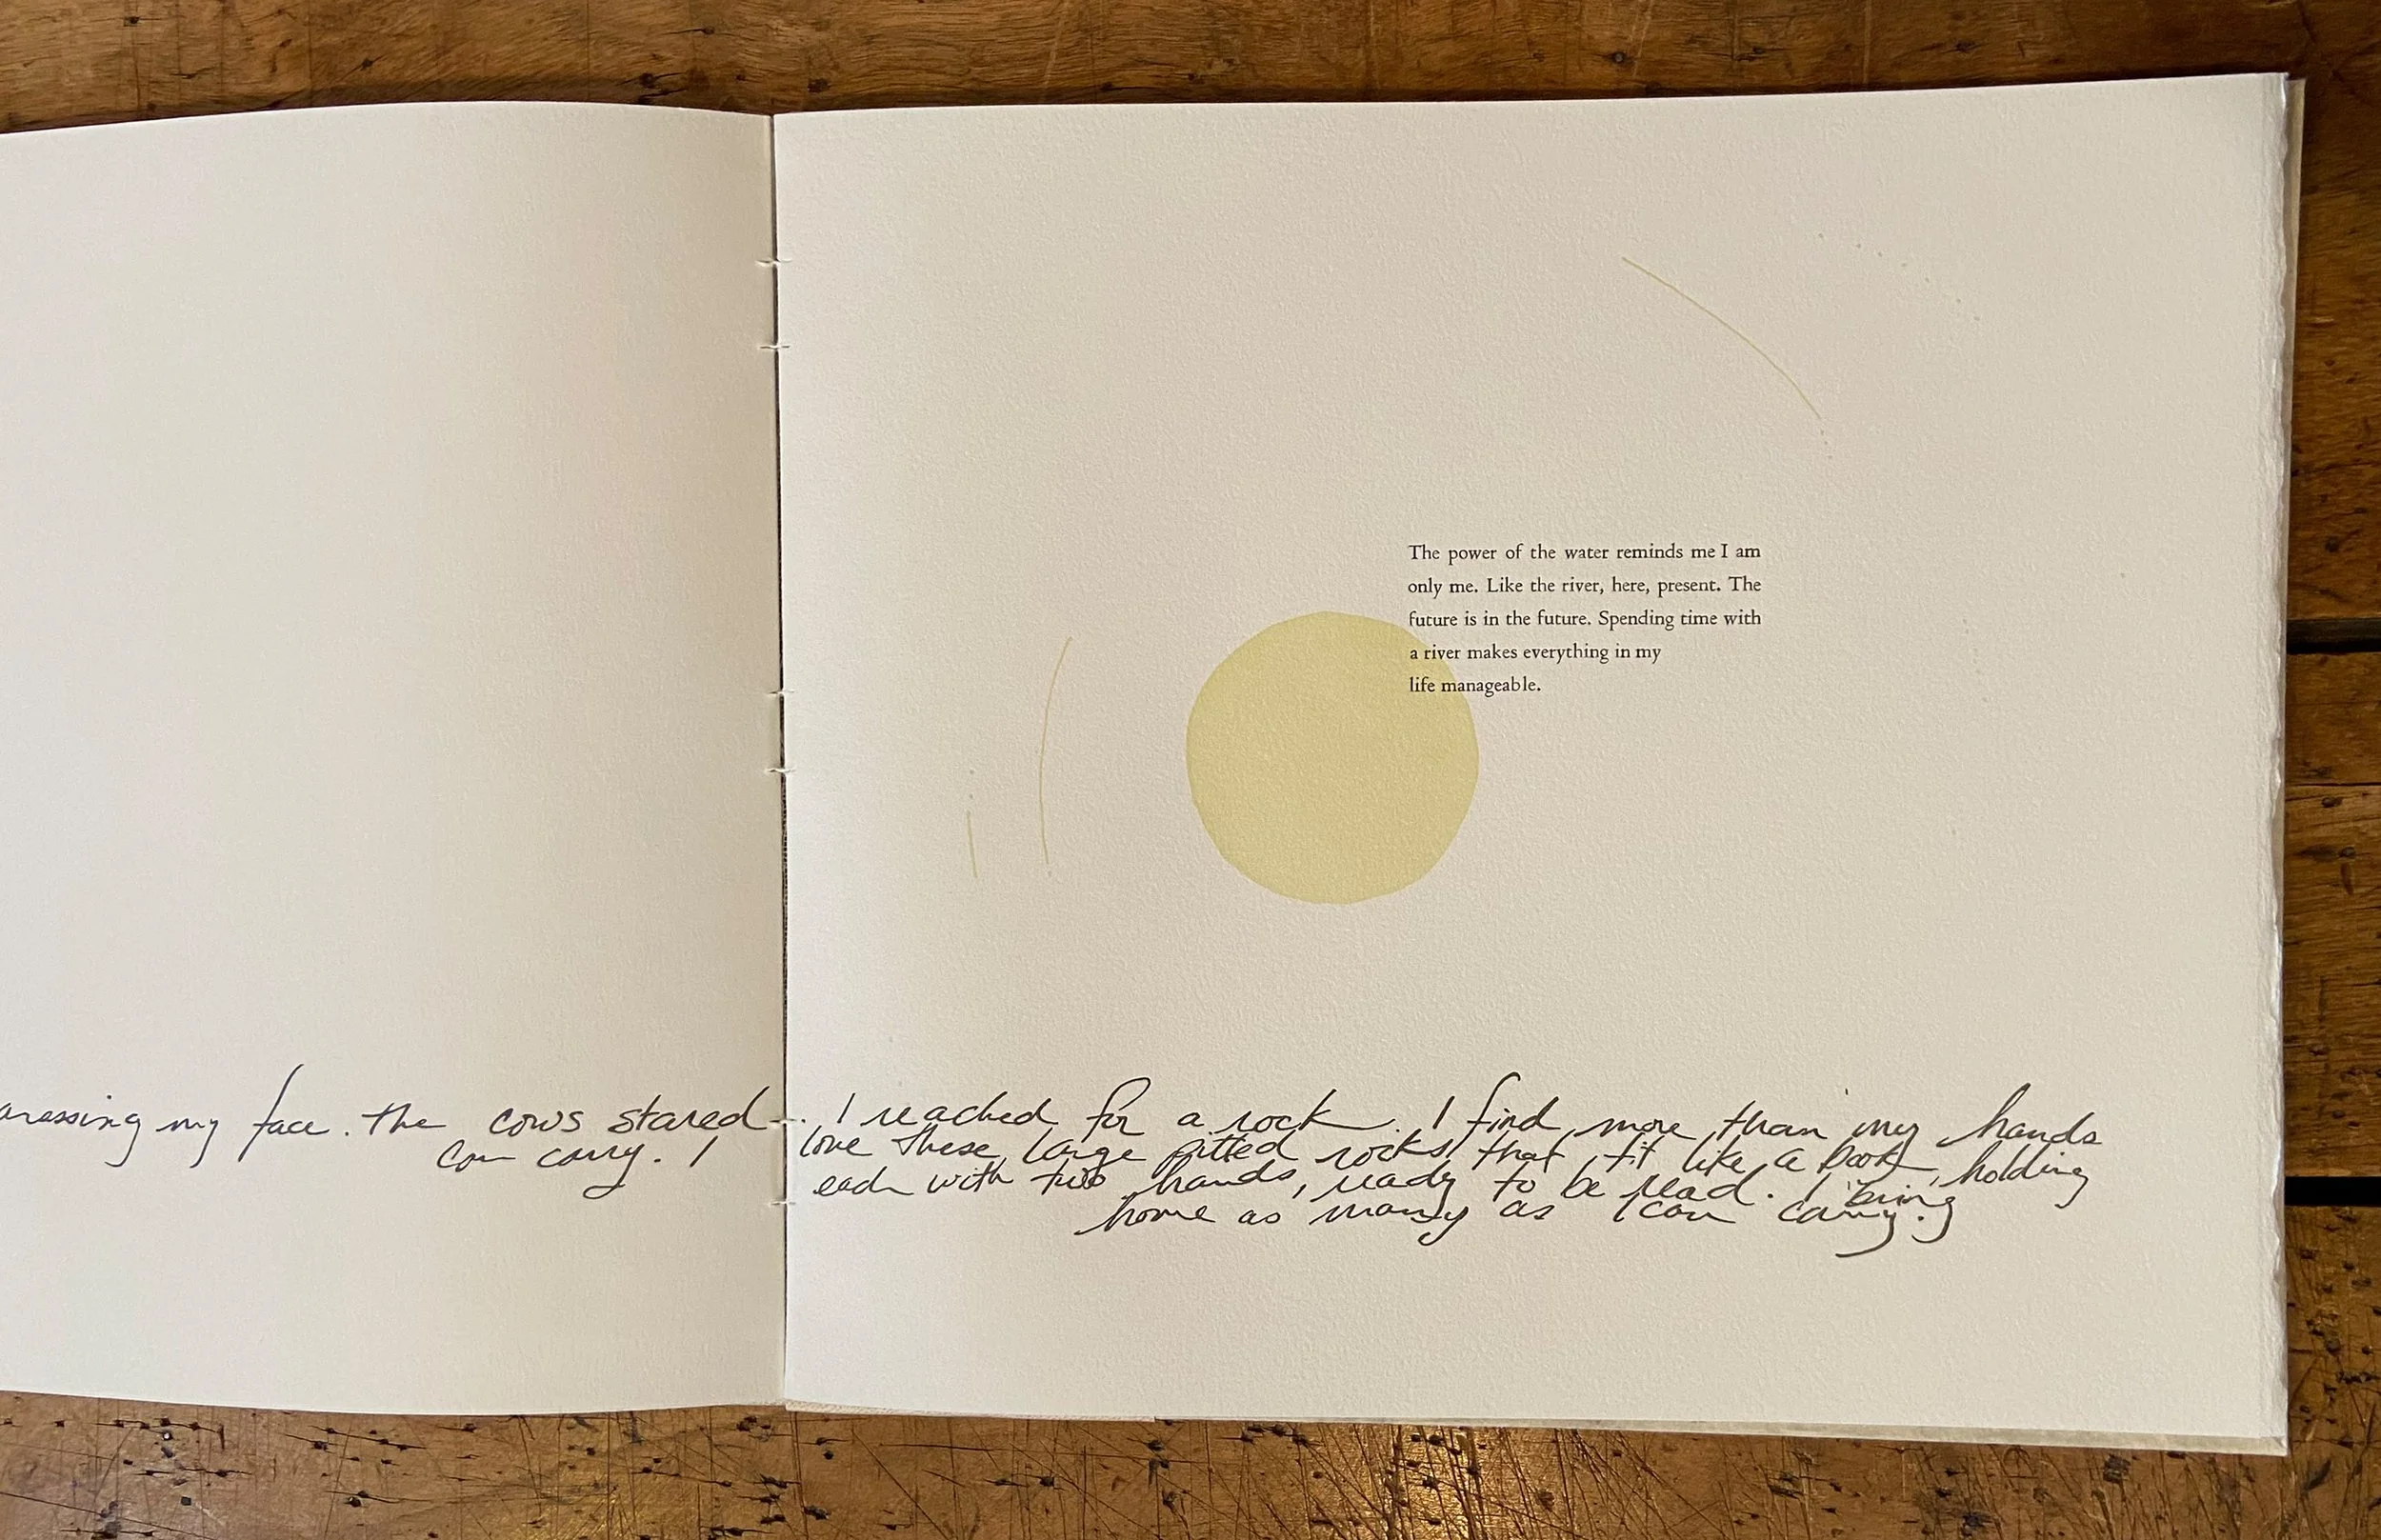 The power of the water reminds me I am
only me. Like the river, here, present. The
future is in the future. Spending time with
a river makes everything in my
life manageable.
my face. the cows stared. I reached for a rock. I find more than my hands
can carry. I love these large pitted rocks that fit like a book, holding
each with two hands, ready to be read. I bring
home as many as I can carry.